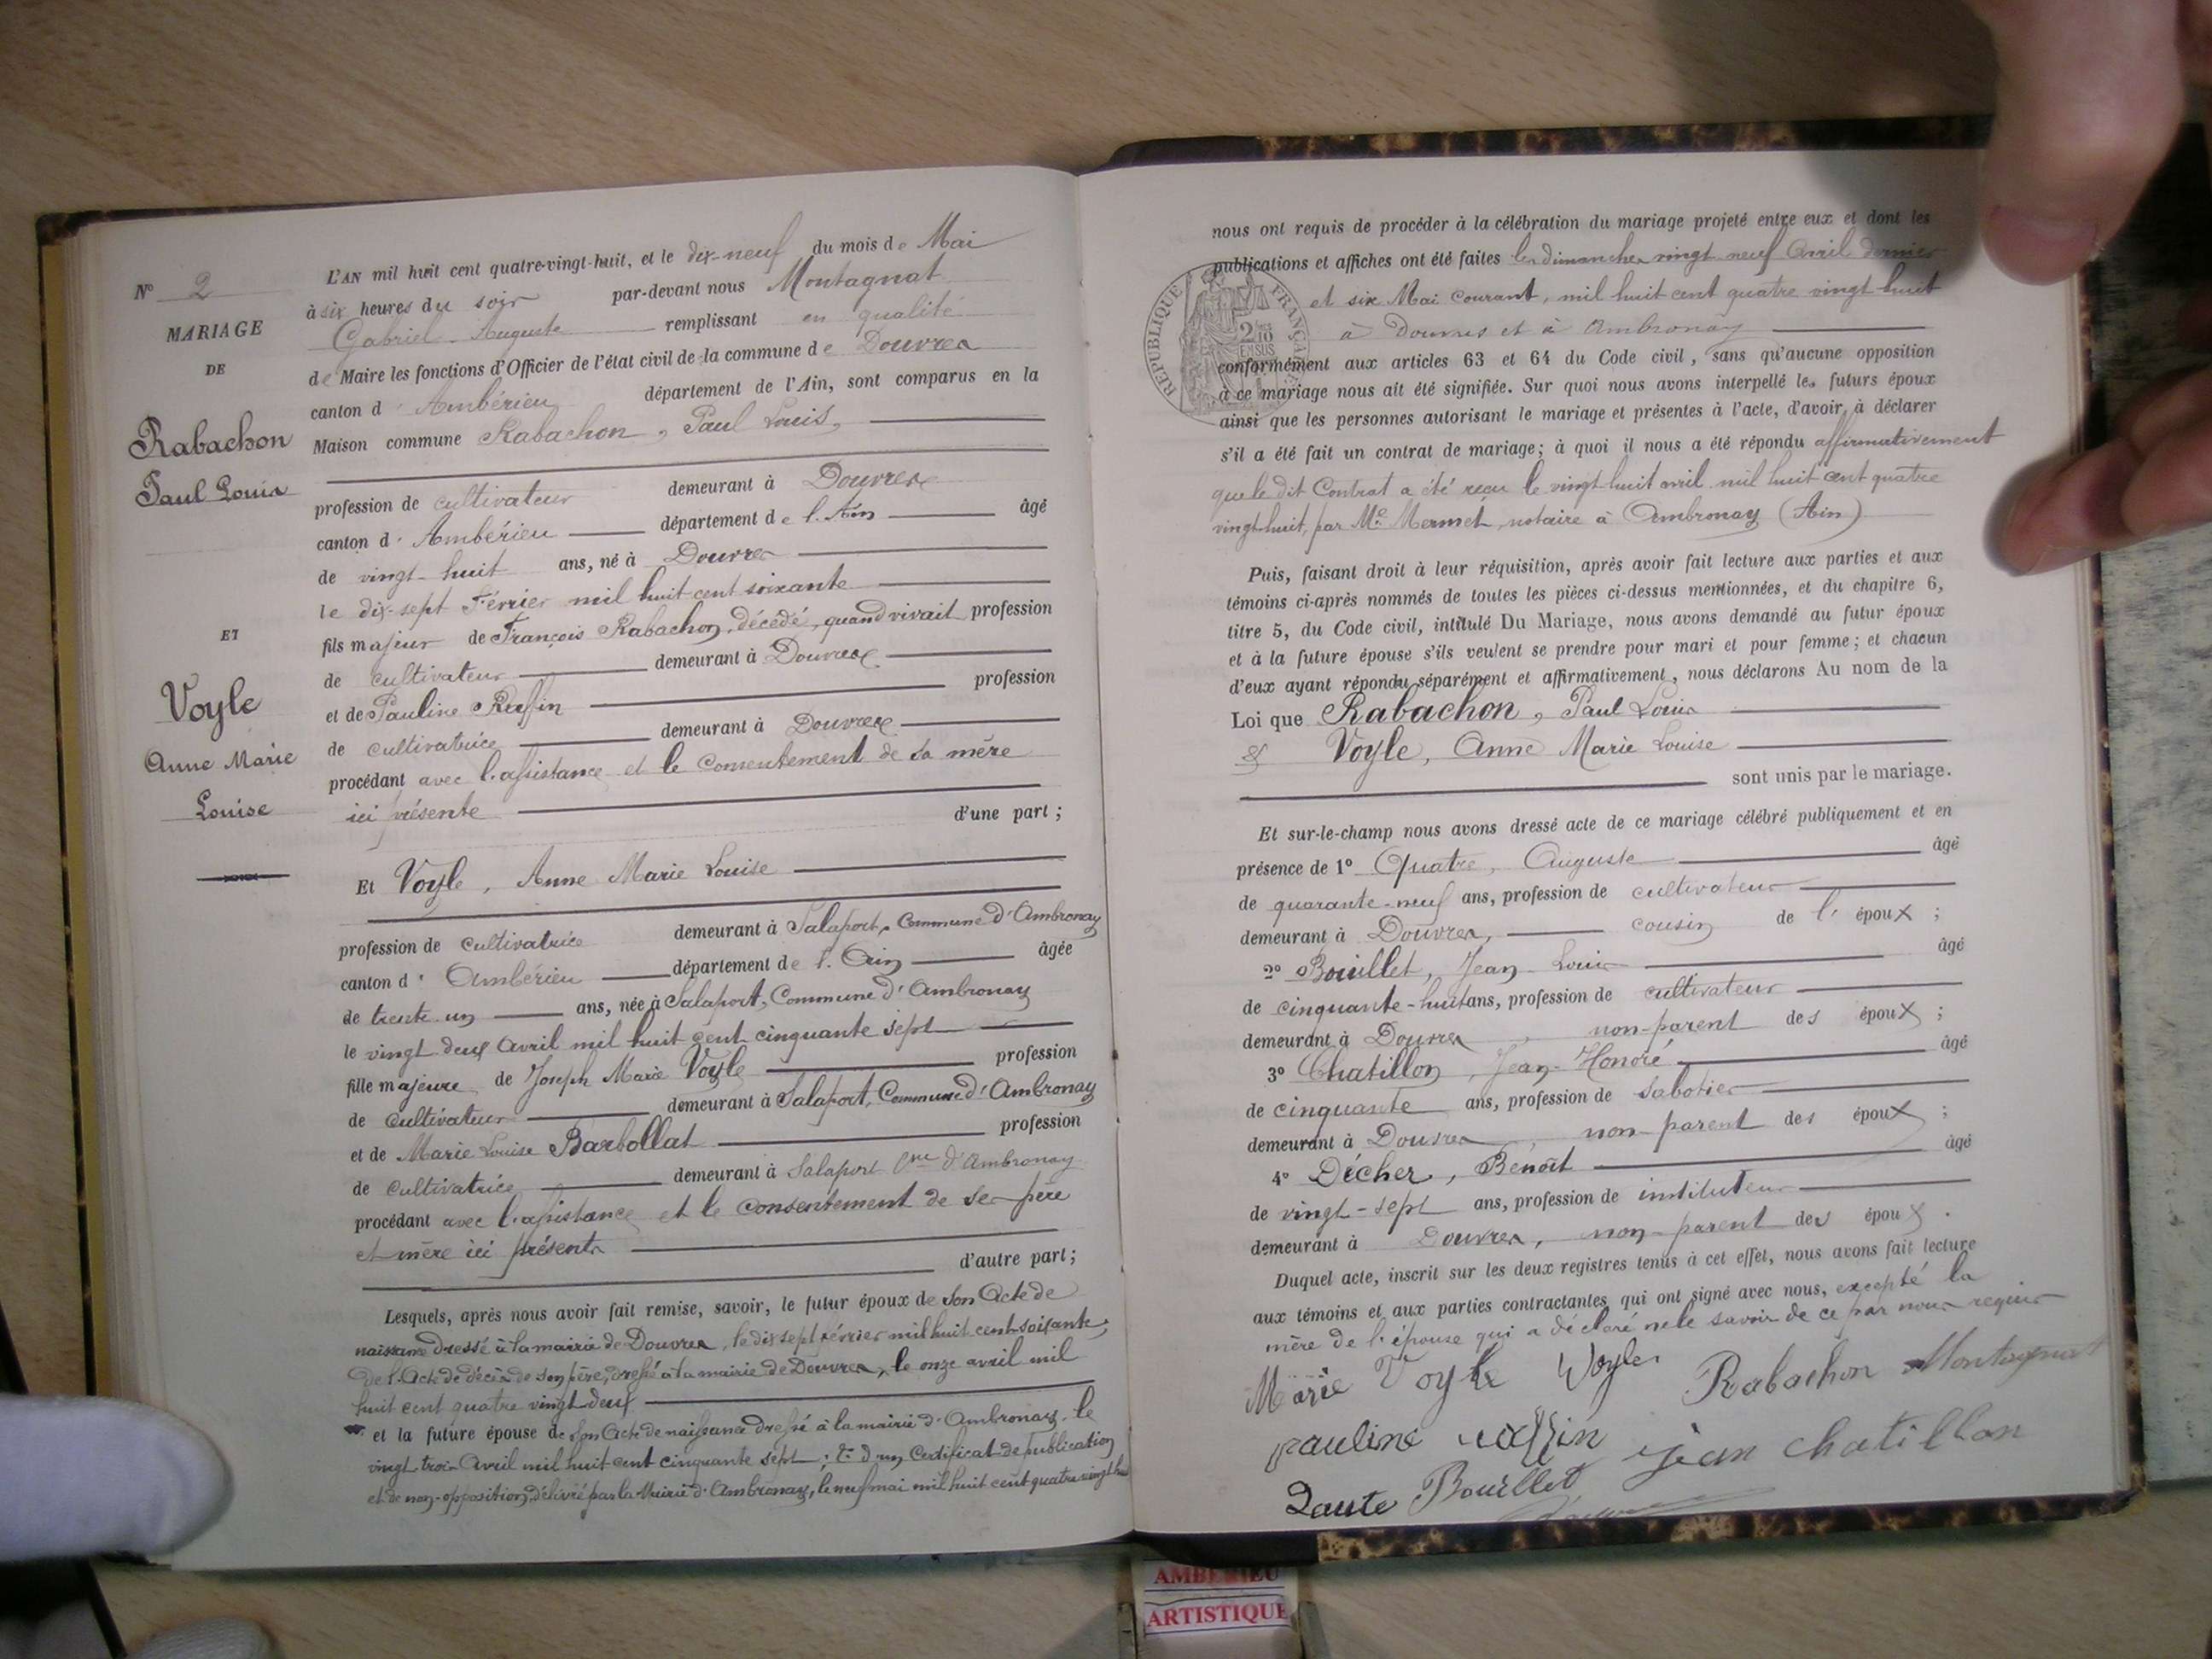 N° 2
MARIAGE
DE
Rabachon
Paul Louis
ET
Voyle
Anne Marie
Louise
L'AN mil huit cent quatre-vingt-huit, et le dix-neuf du mois de Mai
à six heures du soir par-devant nous Montagnat
Gabriel Auguste remplissant en qualité
de Maire les fonctions d'Officier de l'état civil de la commune de Douvres
canton d'Ambérieu département de l'Ain, sont comparus en la
Maison commune Rabachon, Paul Louis,
profession de cultivateur demeurant à Douvres
canton d'Ambérieu département de l'Ain âgé
de vingt-huit ans, né à Douvres
le dix-sept Février mil huit cent soixante
fils majeur de François Rabachon, décédé, quand vivait profession
de cultivateur demeurant à Douvres
et de Pauline Ruffin profession
de cultivatrice demeurant à Douvres
procédant avec l'assistance et le consentement de sa mère
ici présente d'une part;
Et Voyle, Anne Marie Louise
profession de cultivatrice demeurant à Salaport, Commune d'Ambronay
canton d'Ambérieu département de l'Ain âgée
de trente un ans, née à Salaport, Commune d'Ambronay
le vingt deux Avril mil huit cent cinquante sept
fille majeure de Joseph Marie Voyle profession
de cultivateur demeurant à Salaport, Commune d'Ambronay
et de Marie Louise Barbollat profession
de cultivatrice demeurant à Salaport Cne d'Ambronay
procédant avec l'assistance et le consentement de ses père
et mère ici présents
d'autre part;
Lesquels, après nous avoir fait remise, savoir, le futur époux de son Acte de
naissance dressé à la mairie de Douvres, le dix sept février mil huit cent soixante,
de l'Acte de décès de son père, dressé à la mairie de Douvres, le onze avril mil
huit cent quatre vingt deux
et la future épouse de son Acte de naissance dressé à la mairie d'Ambronay, le
vingt-trois Avril mil huit cent cinquante sept; & d'un Certificat de publication
et de non-opposition délivré par la Mairie d'Ambronay, le neuf mai mil huit cent quatre vingt huit
nous ont requis de procéder à la célébration du mariage projeté entre eux et dont les
publications et affiches ont été faites les dimanches vingt neuf Avril dernier
et six Mai courant, mil huit cent quatre vingt huit
à Douvres et à Ambronay
conformément aux articles 63 et 64 du Code civil, sans qu'aucune opposition
à ce mariage nous ait été signifiée. Sur quoi nous avons interpellé les futurs époux
ainsi que les personnes autorisant le mariage et présentes à l'acte, d'avoir à déclarer
s'il a été fait un contrat de mariage; à quoi il nous a été répondu affirmativement
que le dit Contrat a été reçu le vingt-huit avril mil huit cent quatre
vingt-huit, par Me Mermet, notaire à Ambronay (Ain)
Puis, faisant droit à leur réquisition, après avoir fait lecture aux parties et aux
témoins ci-après nommés de toutes les pièces ci-dessus mentionnées, et du chapitre 6,
titre 5, du Code civil, intitulé Du Mariage, nous avons demandé au futur époux
et à la future épouse s'ils veulent se prendre pour mari et pour femme; et chacun
d'eux ayant répondu séparément et affirmativement, nous déclarons Au nom de la
Loi que Rabachon, Paul Louis
& Voyle, Anne Marie Louise
sont unis par le mariage.
Et sur-le-champ nous avons dressé acte de ce mariage célébré publiquement et en
présence de 1° Quatre, Auguste âgé
de quarante-neuf ans, profession de cultivateur
demeurant à Douvres, cousin de l'époux;
2° Bouillet, Jean Louis âgé
de cinquante-huit ans, profession de cultivateur
demeurant à Douvres, non-parent des époux;
3° Chatillon, Jean-Honoré âgé
de cinquante ans, profession de sabotier
demeurant à Douvres, non-parent des époux;
4° Décher, Benoît âgé
de vingt-sept ans, profession de instituteur
demeurant à Douvres, non-parent des époux.
Duquel acte, inscrit sur les deux registres tenus à cet effet, nous avons fait lecture
aux témoins et aux parties contractantes qui ont signé avec nous, excepté la
mère de l'épouse qui a déclaré ne le savoir de ce par nous requis
Marie Voyle Voyle Rabachon Montagnat
pauline ruffin jean chatillon
Bouillet
RÉPUBLIQUE FRANÇAISE
2/10
EN SUS
AMBERIEU
ARTISTIQUE